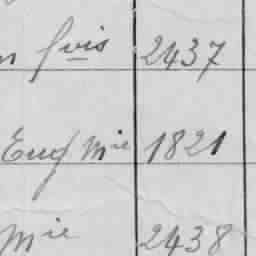 n fvis 2437
Eug Mie 1821
Mie 2438